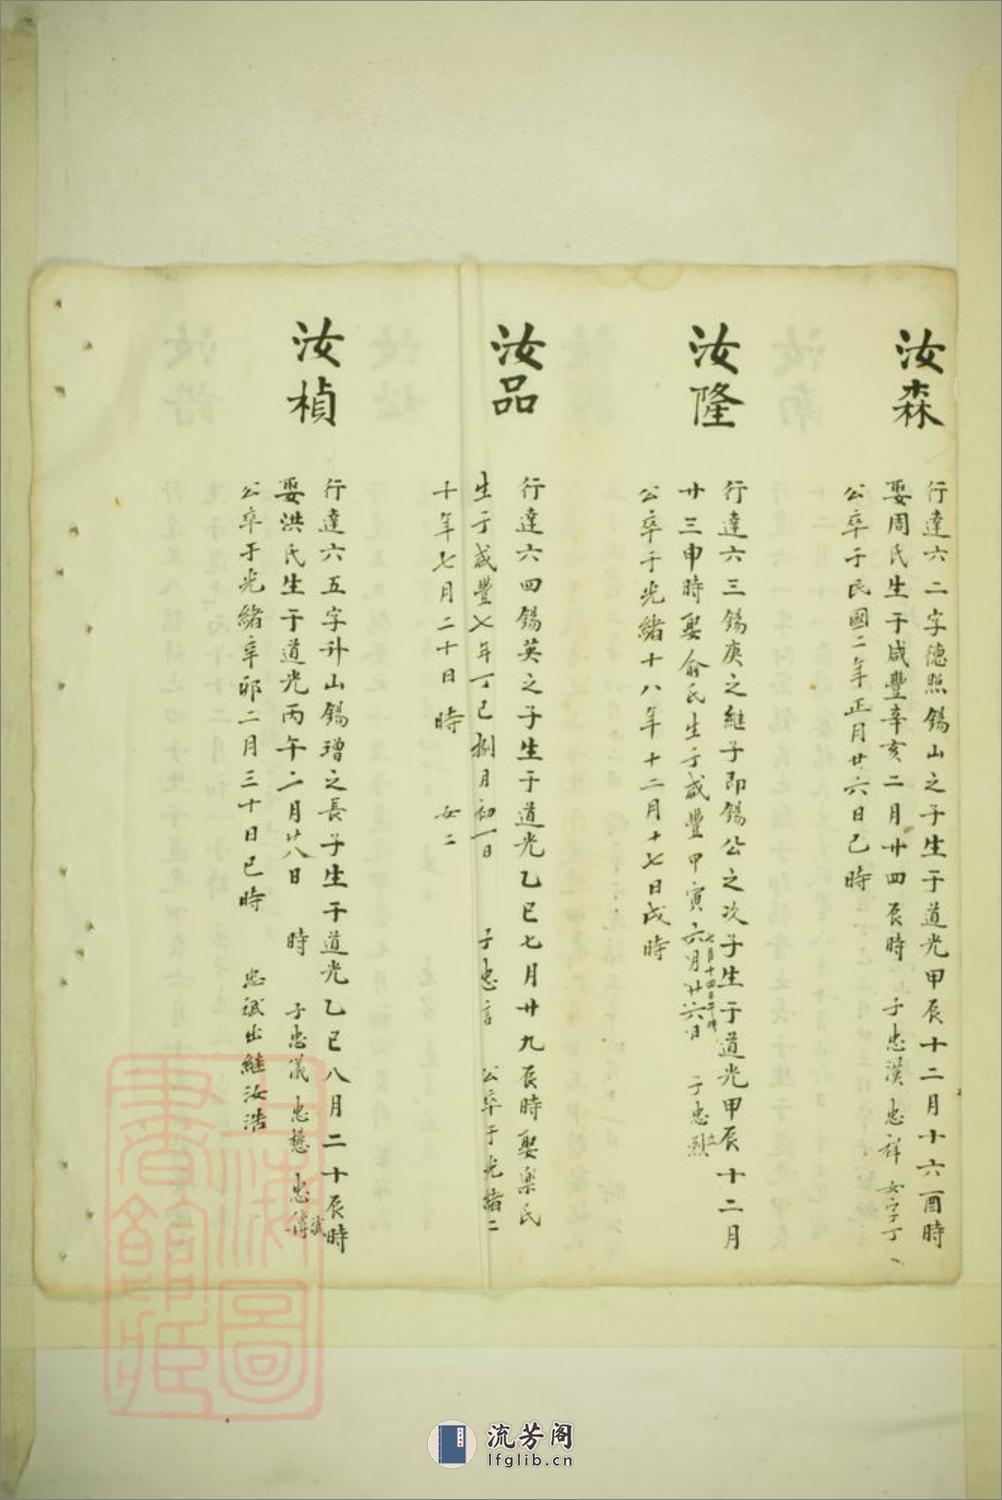 汝森
行達六二字德照錫山之子生于道光甲辰十二月十六酉時
娶周氏生于咸豐辛亥二月廿四辰時 子忠漢 忠祥 女字丁
公卒于民國二年正月廿六日巳時
汝隆
行達六三錫庚之継子即錫公之次子生于道光甲辰十二月
廿三申時娶俞氏生于咸豐甲寅六月廿六日 子忠烈
七月十四日午時
公卒于光緒十八年十二月十七日戌時
汝品
行達六四錫英之子生于道光乙巳七月廿九辰時娶樂氏
生于咸豐七年丁巳捌月初一日 子忠言 公卒于光緒二
十年七月二十日 時 女二
汝楨
行達六五字升山錫璔之長子生于道光乙巳八月二十辰時
娶洪氏生于道光丙午二月廿八日 時 子忠儀 忠懋 忠傳
斌
公卒于光緒辛卯二月三十日巳時 忠斌出継汝浩
上海圖
書館藏
流芳阁
lfglib.cn